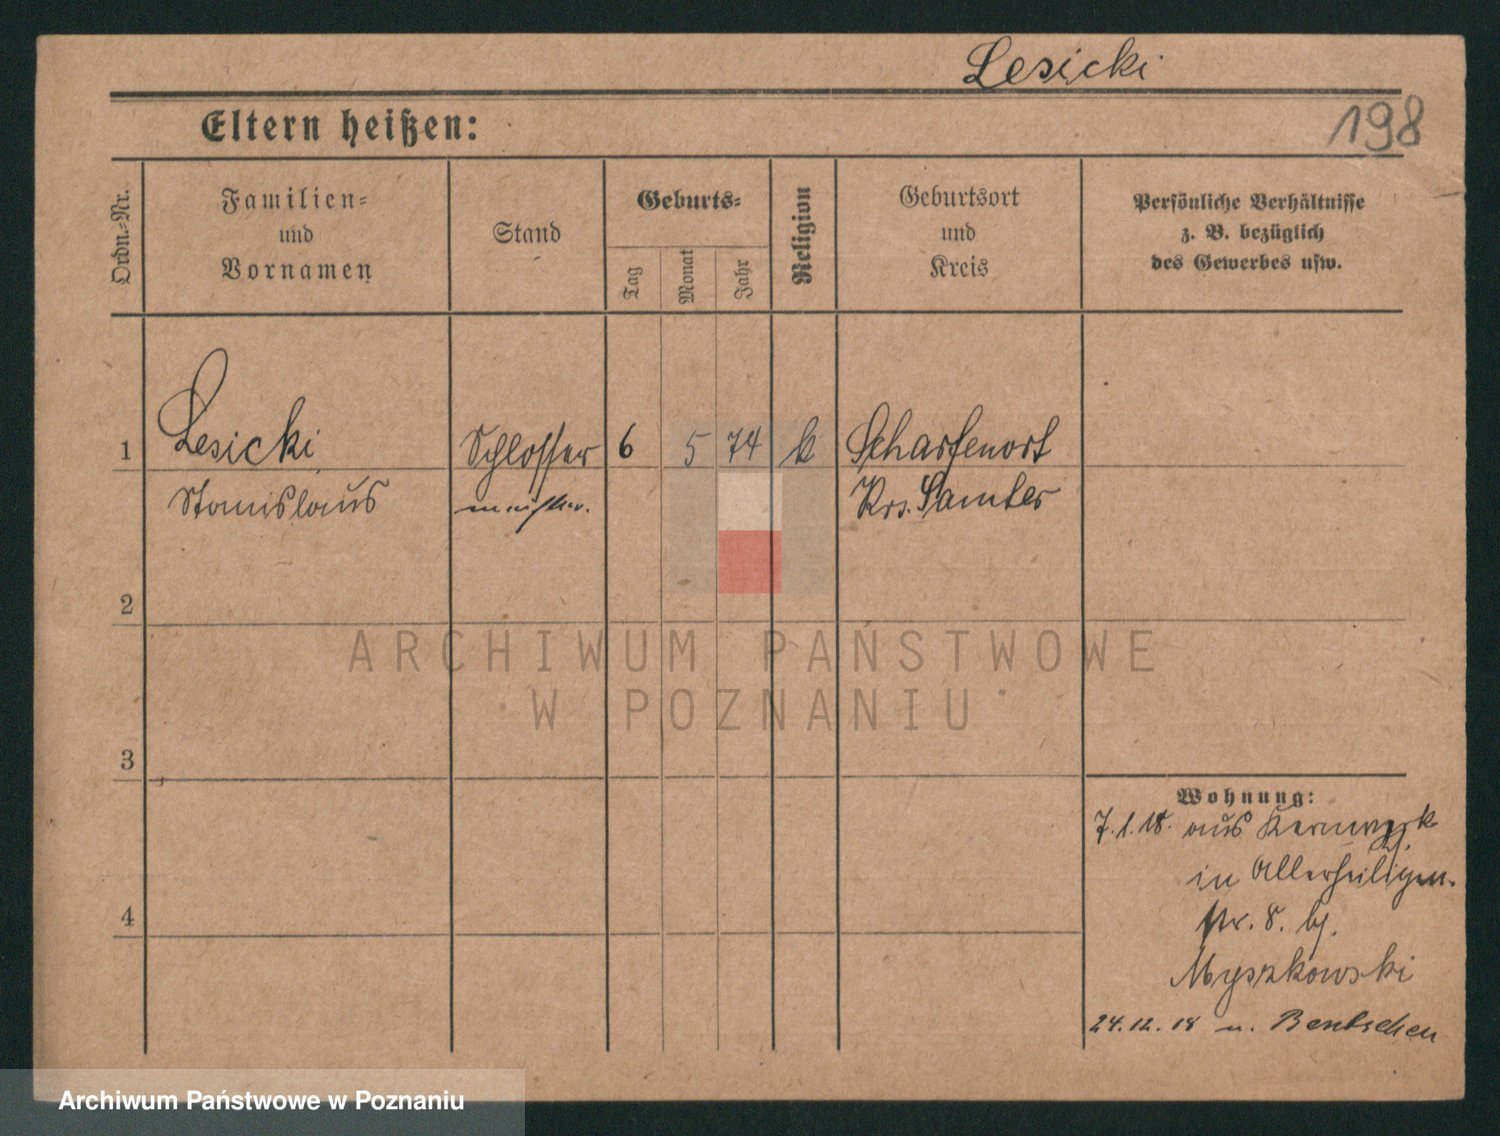 Lesicki
198
Eltern heißen:
Ordn.-Nr.
Familien-
und
Vornamen
Stand
Geburts-
Tag
Monat
Jahr
Religion
Geburtsort
und
Kreis
Persönliche Verhältnisse
z. B. bezüglich
des Gewerbes usw.
1
Lesicki
Schlosser
6
5
74
k
Scharfenort
Stanislaus
meister.
Krs. Samter
2
ARCHIWUM PAŃSTWOWE
W POZNANIU
3
Wohnung:
7.1.18. aus Kernwerk
in Allerheiligen-
4
str. 8. bj.
Myszkowski
24.12.18 n. Bentschen
Archiwum Państwowe w Poznaniu